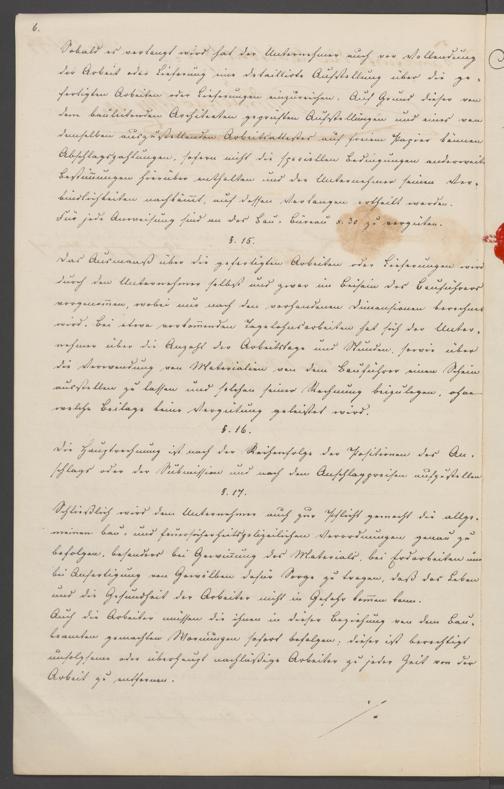 6.
Sobald es verlangt wird hat der Unternehmer auch vor Vollendung
der Arbeit oder Lieferung eine detaillirte Aufstellung über die ge-
fertigten Arbeiten oder Lieferungen einzureichen. Auf Grund dieser von
dem bauleitenden Architekten geprüften Aufstellungen und eines von
demselben auszustellenden Arbeitsattestes auf freiem Papier können
Abschlagszahlungen, sofern nicht die speciellen Bedingungen anderweit
Bestimmungen hierüber enthalten und der Unternehmer seinen Ver-
bindlichkeiten nachkommt, auf dessen Verlangen ertheilt werden.
Für jede Anweisung sind an das Bau-Büreau 30 zu vergüten.
§. 15.
Das Ausmaass über die gefertigten Arbeiten oder Lieferungen wird
durch den Unternehmer selbst und zwar im Beisein des Bauführers
vorgenommen, wobei nur nach den vorhandenen Dimensionen berechnet
wird. Bei etwa vorkommenden Tagelohnsarbeiten hat sich der Unter-
nehmer über die Anzahl der Arbeitstage und Stunden, sowie über
die Verwendung von Materialien von dem Bauführer einen Schein
ausstellen zu lassen und solchen seiner Rechnung beizulegen, ohne
welche Beilage keine Vergütung geleistet wird.
§. 16.
Die Hauptrechnung ist nach der Reihenfolge der Positionen des An-
schlags oder der Submission und nach den Anschlagspreisen aufzustellen
§. 17.
Schließlich wird dem Unternehmer auch zur Pflicht gemacht die allge-
meinen bau- und feuersicherheitspolizeilichen Verordnungen genau zu
befolgen, besonders bei Gewinnung des Materials, bei Erdarbeiten und
bei Anfertigung von Gewölben dafür Sorge zu tragen, daß das Leben
und die Gesundheit der Arbeiter nicht in Gefahr kommen kann.
Auch die Arbeiter müssen die ihnen in dieser Beziehung von dem Bau-
beamten gemachten Warnungen sofort befolgen; dieser ist berechtigt
unfolgsame oder überhaupt nachläßige Arbeiter zu jeder Zeit von der
Arbeit zu entfernen.